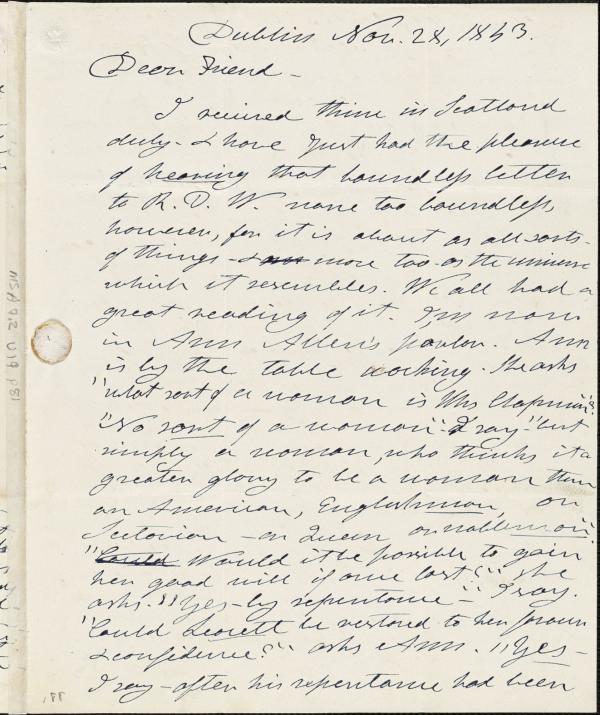 Dublin Nov. 28, 1843.
Dear Friend –
I received thine in Scotland
duly – & have just had the pleasure
of hearing that boundless letter
to R. D. W. none too boundless,
however, for it is about as all sorts
of things – & more too – as the universe
which it resembles. We all had a
great reading of it. I'm now
in Ann Allen's parlor. Ann
is by the table working. She asks
"what sort of a woman is Mrs Chapman"?
"No sort of a woman" I say "but
simply a woman, who thinks it a
greater glory to be a woman than
an American, Englishman, or
Sectarian – or Queen or nobleman".
"Could Would it be possible to gain
her good will if once lost?" she
asks. "Yes – by repentance –" I say.
"Could Leavett be restored to her favour
& confidence?" asks Ann. "Yes –
I say – after his repentance had been